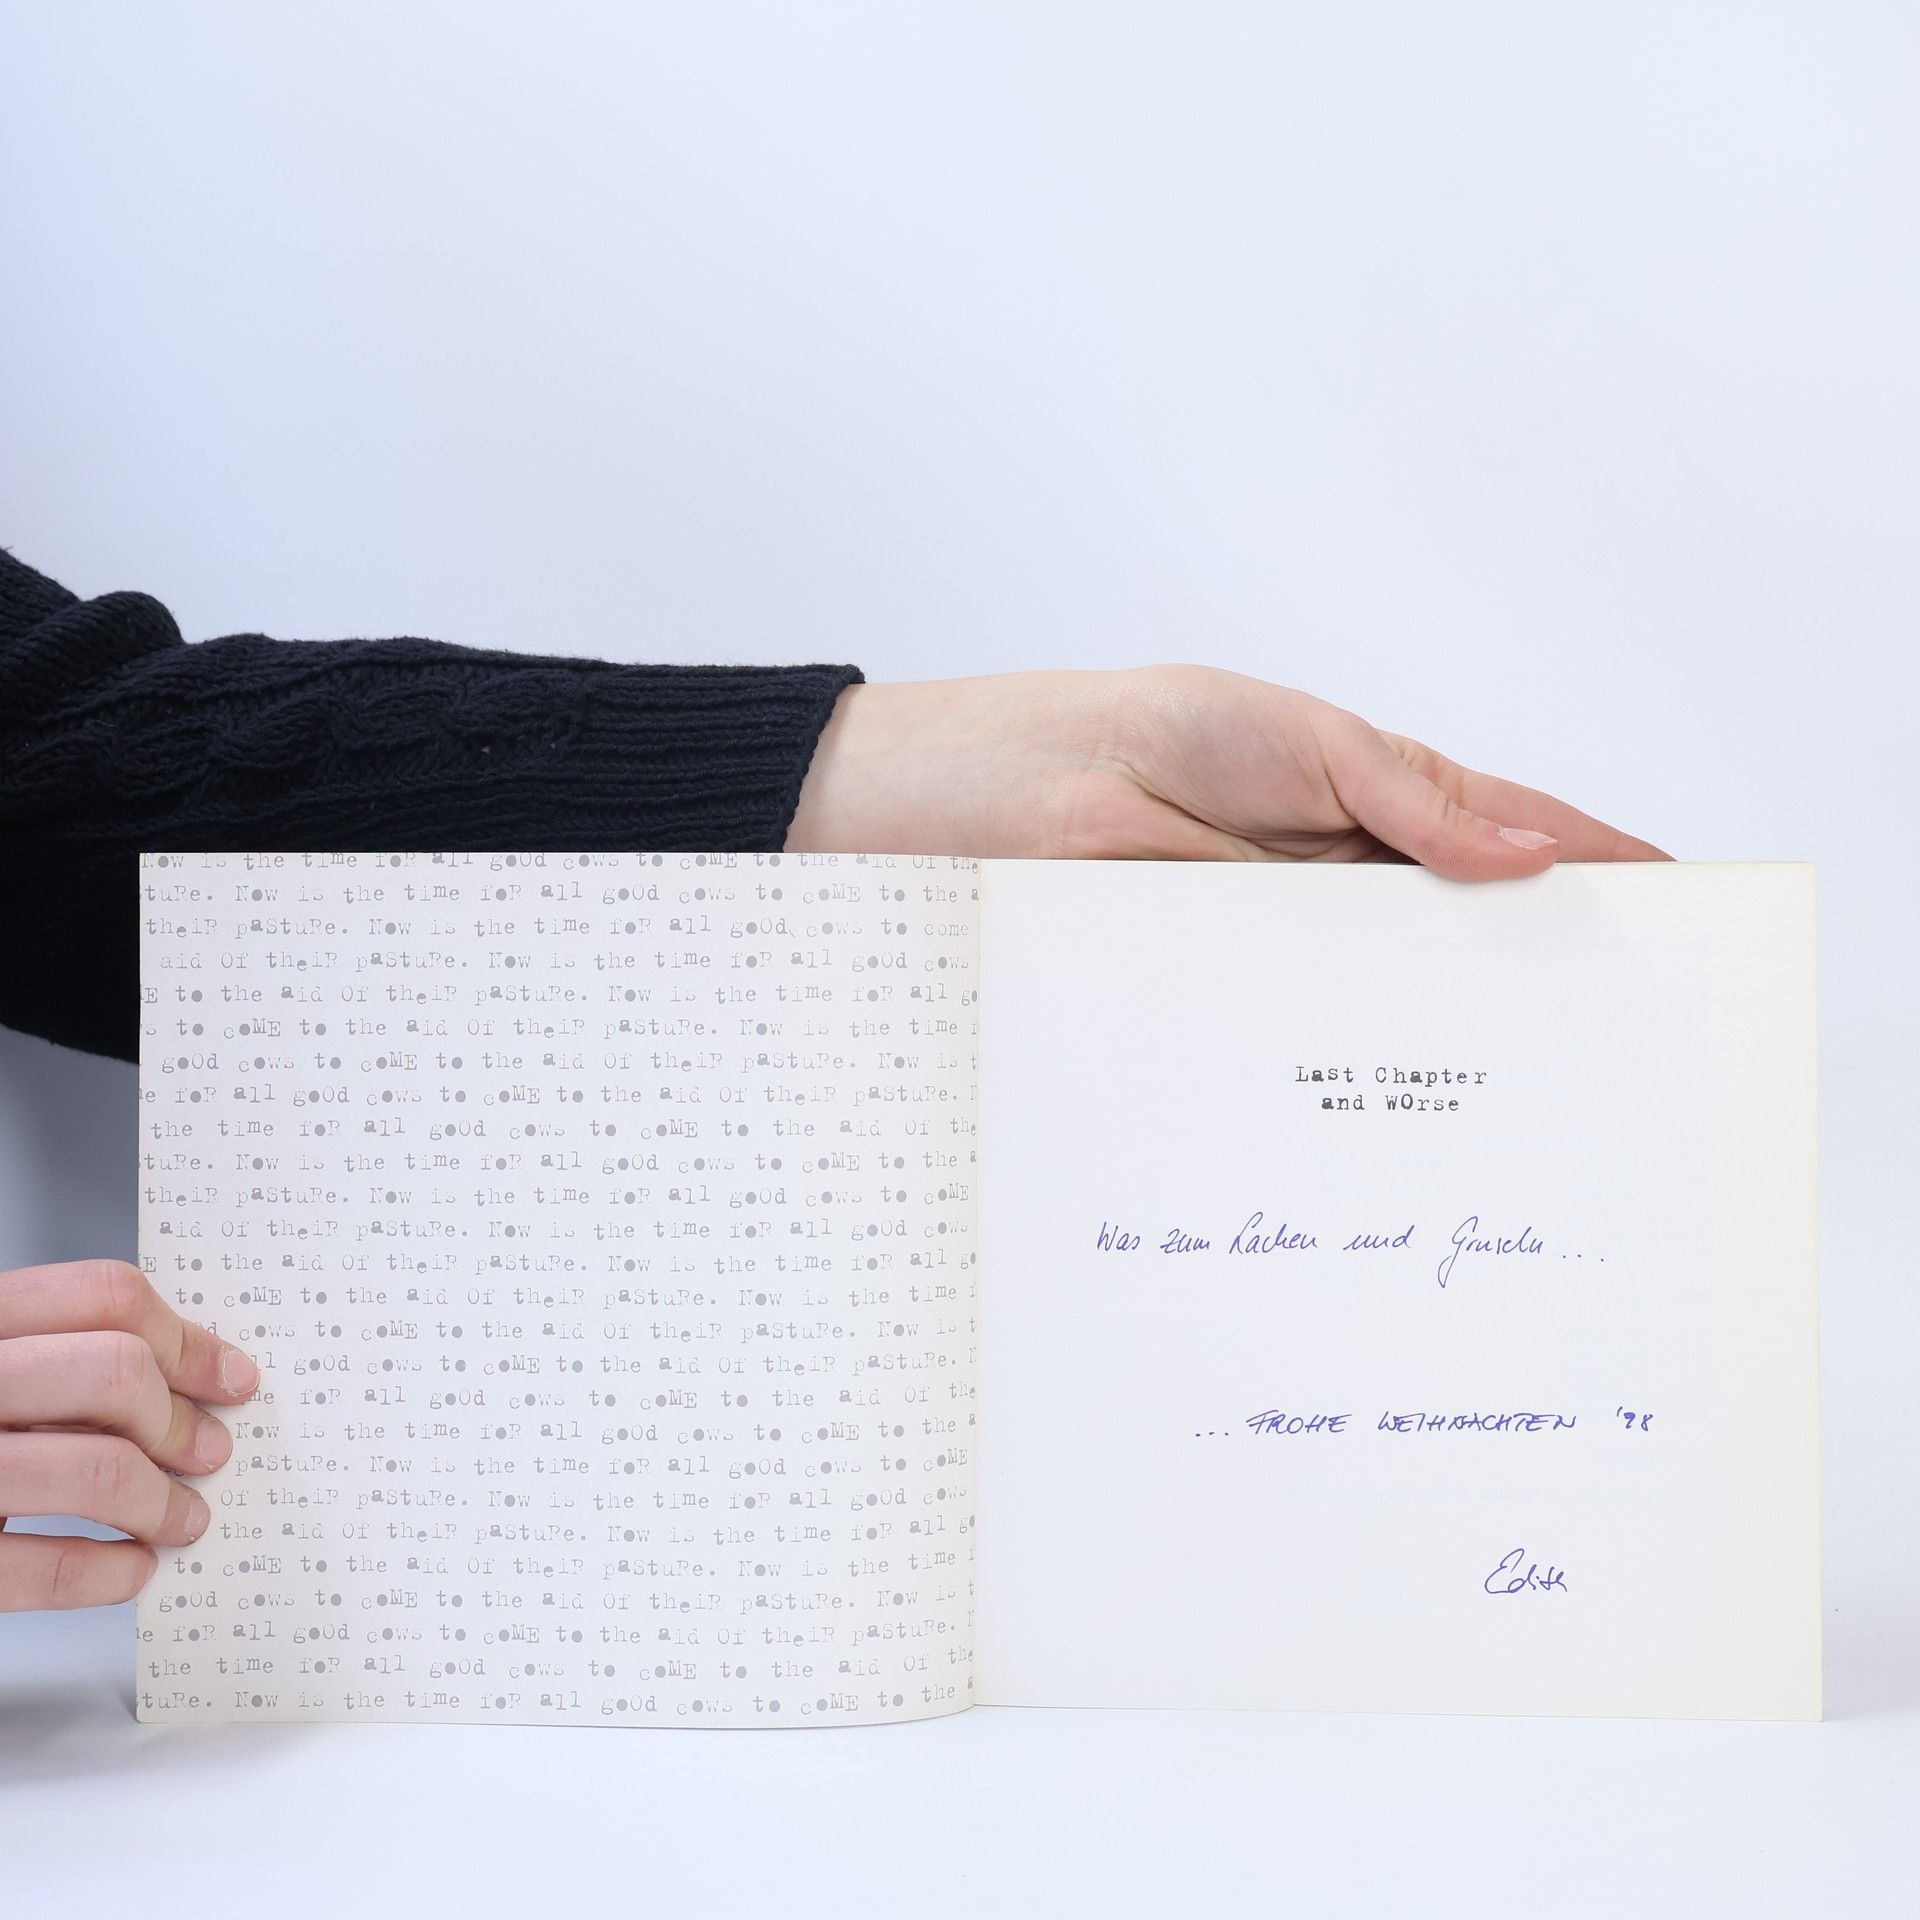 Now is the time foR all goOd cows to coME to the aid Of the
stuRe. Now is the time foR all goOd cows to coME to the a
theiR paStuRe. Now is the time foR all goOd cows to come
aid Of theiR paStuRe. Now is the time foR all goOd cows
ME to the aid Of theiR paStuRe. Now is the time foR all go
s to coME to the aid Of theiR paStuRe. Now is the time f
goOd cows to coME to the aid Of theiR paStuRe. Now is t
e foR all goOd cows to coME to the aid Of theiR paStuRe. N
the time foR all goOd cows to coME to the aid Of the
tuRe. Now is the time foR all goOd cows to coME to the a
theiR paStuRe. Now is the time foR all goOd cows to coME
aid Of theiR paStuRe. Now is the time foR all goOd cows
E to the aid Of theiR paStuRe. Now is the time foR all go
to coME to the aid Of theiR paStuRe. Now is the time f
d cows to coME to the aid Of theiR paStuRe. Now is t
ll goOd cows to coME to the aid Of theiR paStuRe. N
me foR all goOd cows to coME to the aid Of the
Now is the time foR all goOd cows to coME to the a
paStuRe. Now is the time foR all goOd cows to coME
Of theiR paStuRe. Now is the time foR all goOd cows
the aid Of theiR paStuRe. Now is the time foR all go
to coME to the aid Of theiR paStuRe. Now is the time f
goOd cows to coME to the aid Of theiR paStuRe. Now is t
e foR all goOd cows to coME to the aid Of theiR paStuRe. N
the time foR all goOd cows to coME to the aid Of the
tuRe. Now is the time foR all goOd cows to coME to the a
Last Chapter
and WOrse
Was zum Lachen und Gruseln ...
... FROHE WEIHNACHTEN '98
Edith